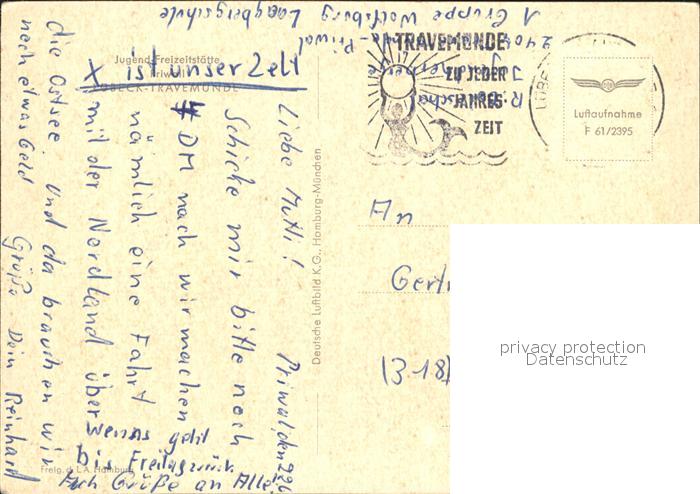 Jugend-Freizeitstätte
Priwall
LÜBECK-TRAVEMÜNDE
x ist unser Zelt
Priwal, den 29.6
Liebe Mutti!
Schicke mir bitte noch
DM nach wir machen
nämlich eine Fahrt
mit der Nordland über
die Ostsee. Und da brauchen wir
noch etwas Geld
Grüße Dein Reinhard
Wenns geht
bis Freitag zurück
Auch Grüße an Alle!
Freig. d. L.A. Hamburg
Deutsche Luftbild K.G., Homburg-München
Gruppe Wolfsburg Laagbergschule
2404 Priwal
TRAVEMÜNDE
ZU JEDER
JAHRES-
ZEIT
LÜBE
Luftaufnahme
F 61/2395
An
Gertr
(3181
privacy protection
Datenschutz